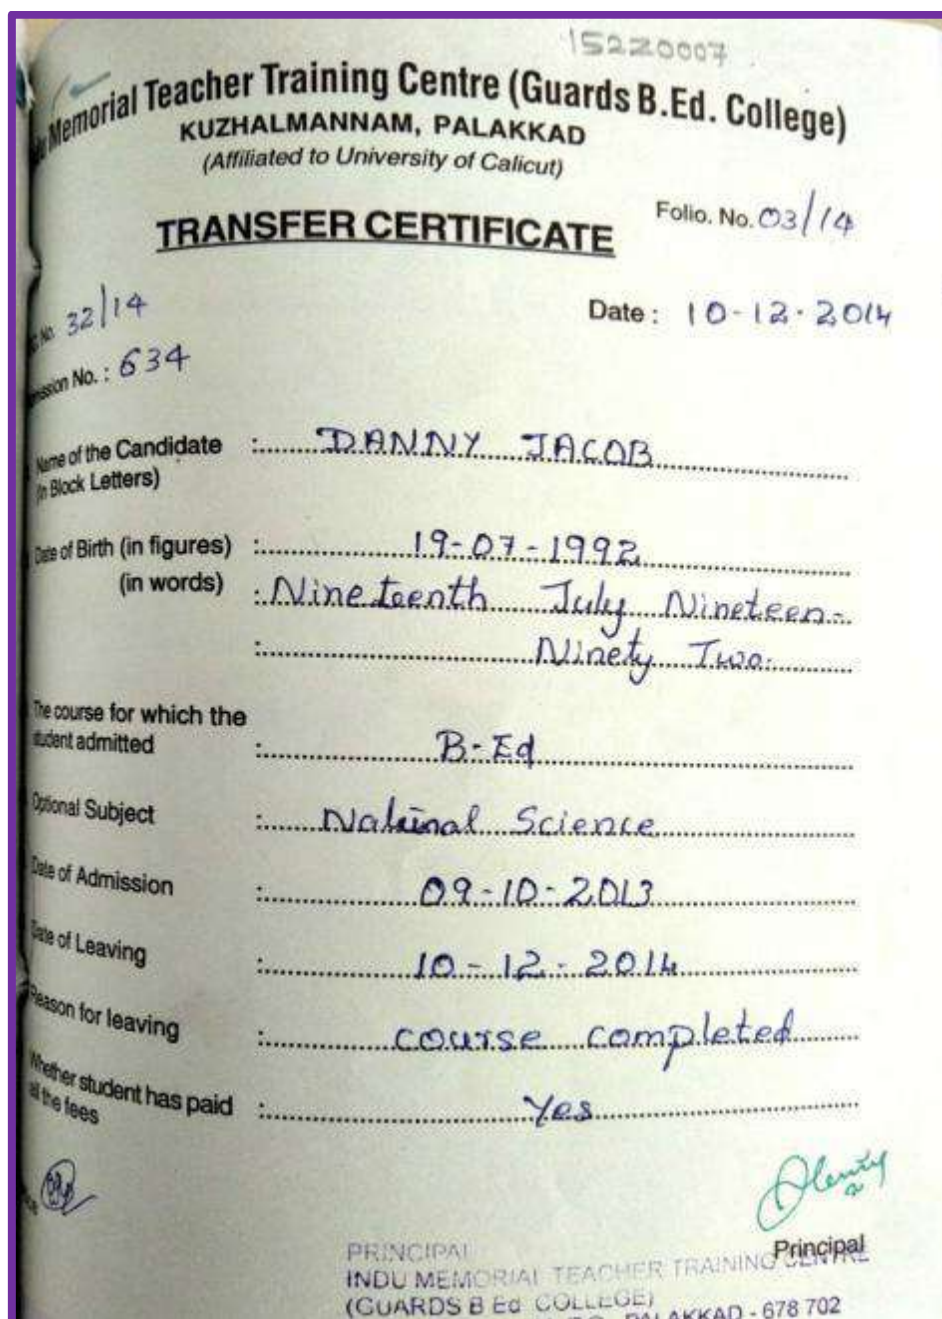 15220007
Memorial Teacher Training Centre (Guards B.Ed. College)
KUZHALMANNAM, PALAKKAD
(Affiliated to University of Calicut)
TRANSFER CERTIFICATE
Folio. No. 03/14
No. 32/14
Date : 10-12-2014
mission No. : 634
Name of the Candidate : DANNY JACOB
(in Block Letters)
Date of Birth (in figures) : 19-07-1992
(in words) : Nineteenth July Nineteen-
: Ninety Two.
The course for which the
student admitted : B-Ed
Optional Subject : Natural Science
Date of Admission : 09-10-2013
Date of Leaving : 10-12-2014
Reason for leaving : course completed
Whether student has paid
all the fees : Yes
Principal
PRINCIPAL
INDU MEMORIAL TEACHER TRAINING CENTRE
(GUARDS B Ed COLLEGE)
PALAKKAD - 678 702